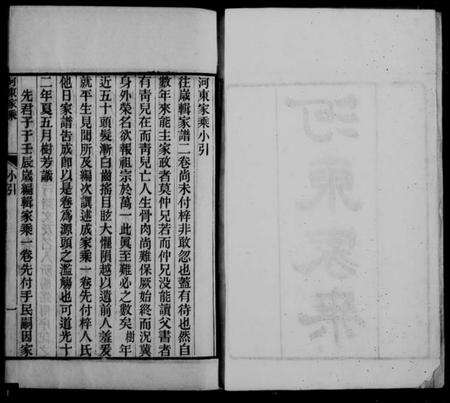 河東家乘
河東家乘小引
往歲輯家譜二卷尚未付梓非敢忽也蓋有待也然自
數年來能主家政者莫仲兒若而仲兒沒能讀父書者
有青兒在而青兒亡人生骨肉尚難保厥始終而況冀
身外榮名欲報祖宗於萬一此眞至難必之數矣樹年
近五十頭髮漸白齒搖目眩大懼隕越以遺前人羞爰
就平生見聞所及編次譔述成家乘一卷先付梓人氏
他日家譜告成卽以是卷爲源頭之濫觴也可道光十
二年夏五月樹芳識
先君子于壬辰歲編輯家乘一卷先付手民嗣因家
河東家乘
小引
一